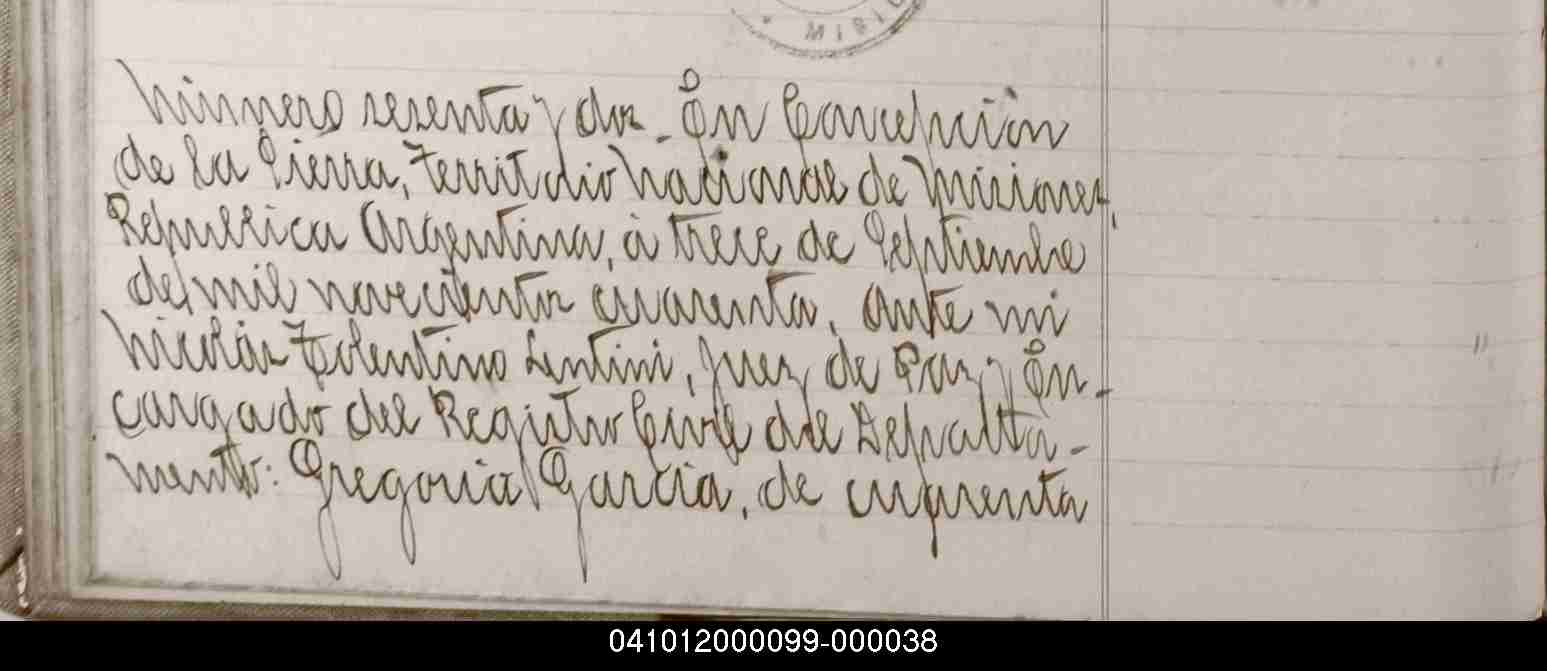 MISIO
Número sesenta y dos. En Concepción
de la Sierra, territorio Nacional de Misiones,
República Argentina, à trece de Septiembre
de mil novecientos cuarenta, ante mi
Nicolás Tolentino Lentini, Juez de Paz y En-
cargado del Registro Civil del Departa-
mento: Gregoria García, de cuarenta
041012000099-000038